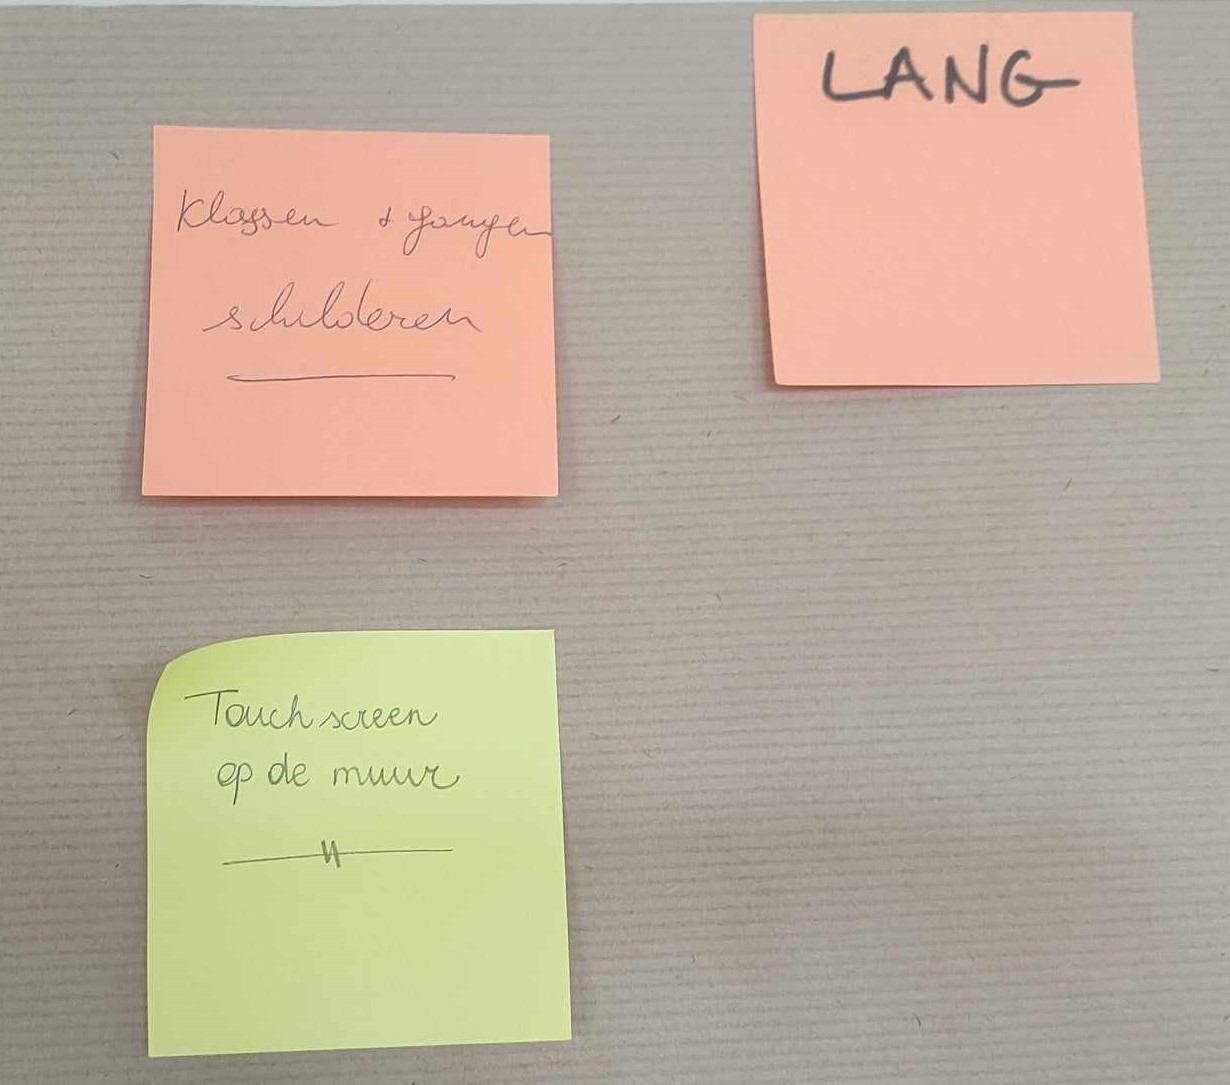 LANG
Klassen + gangen
schilderen
Touch screen
op de muur